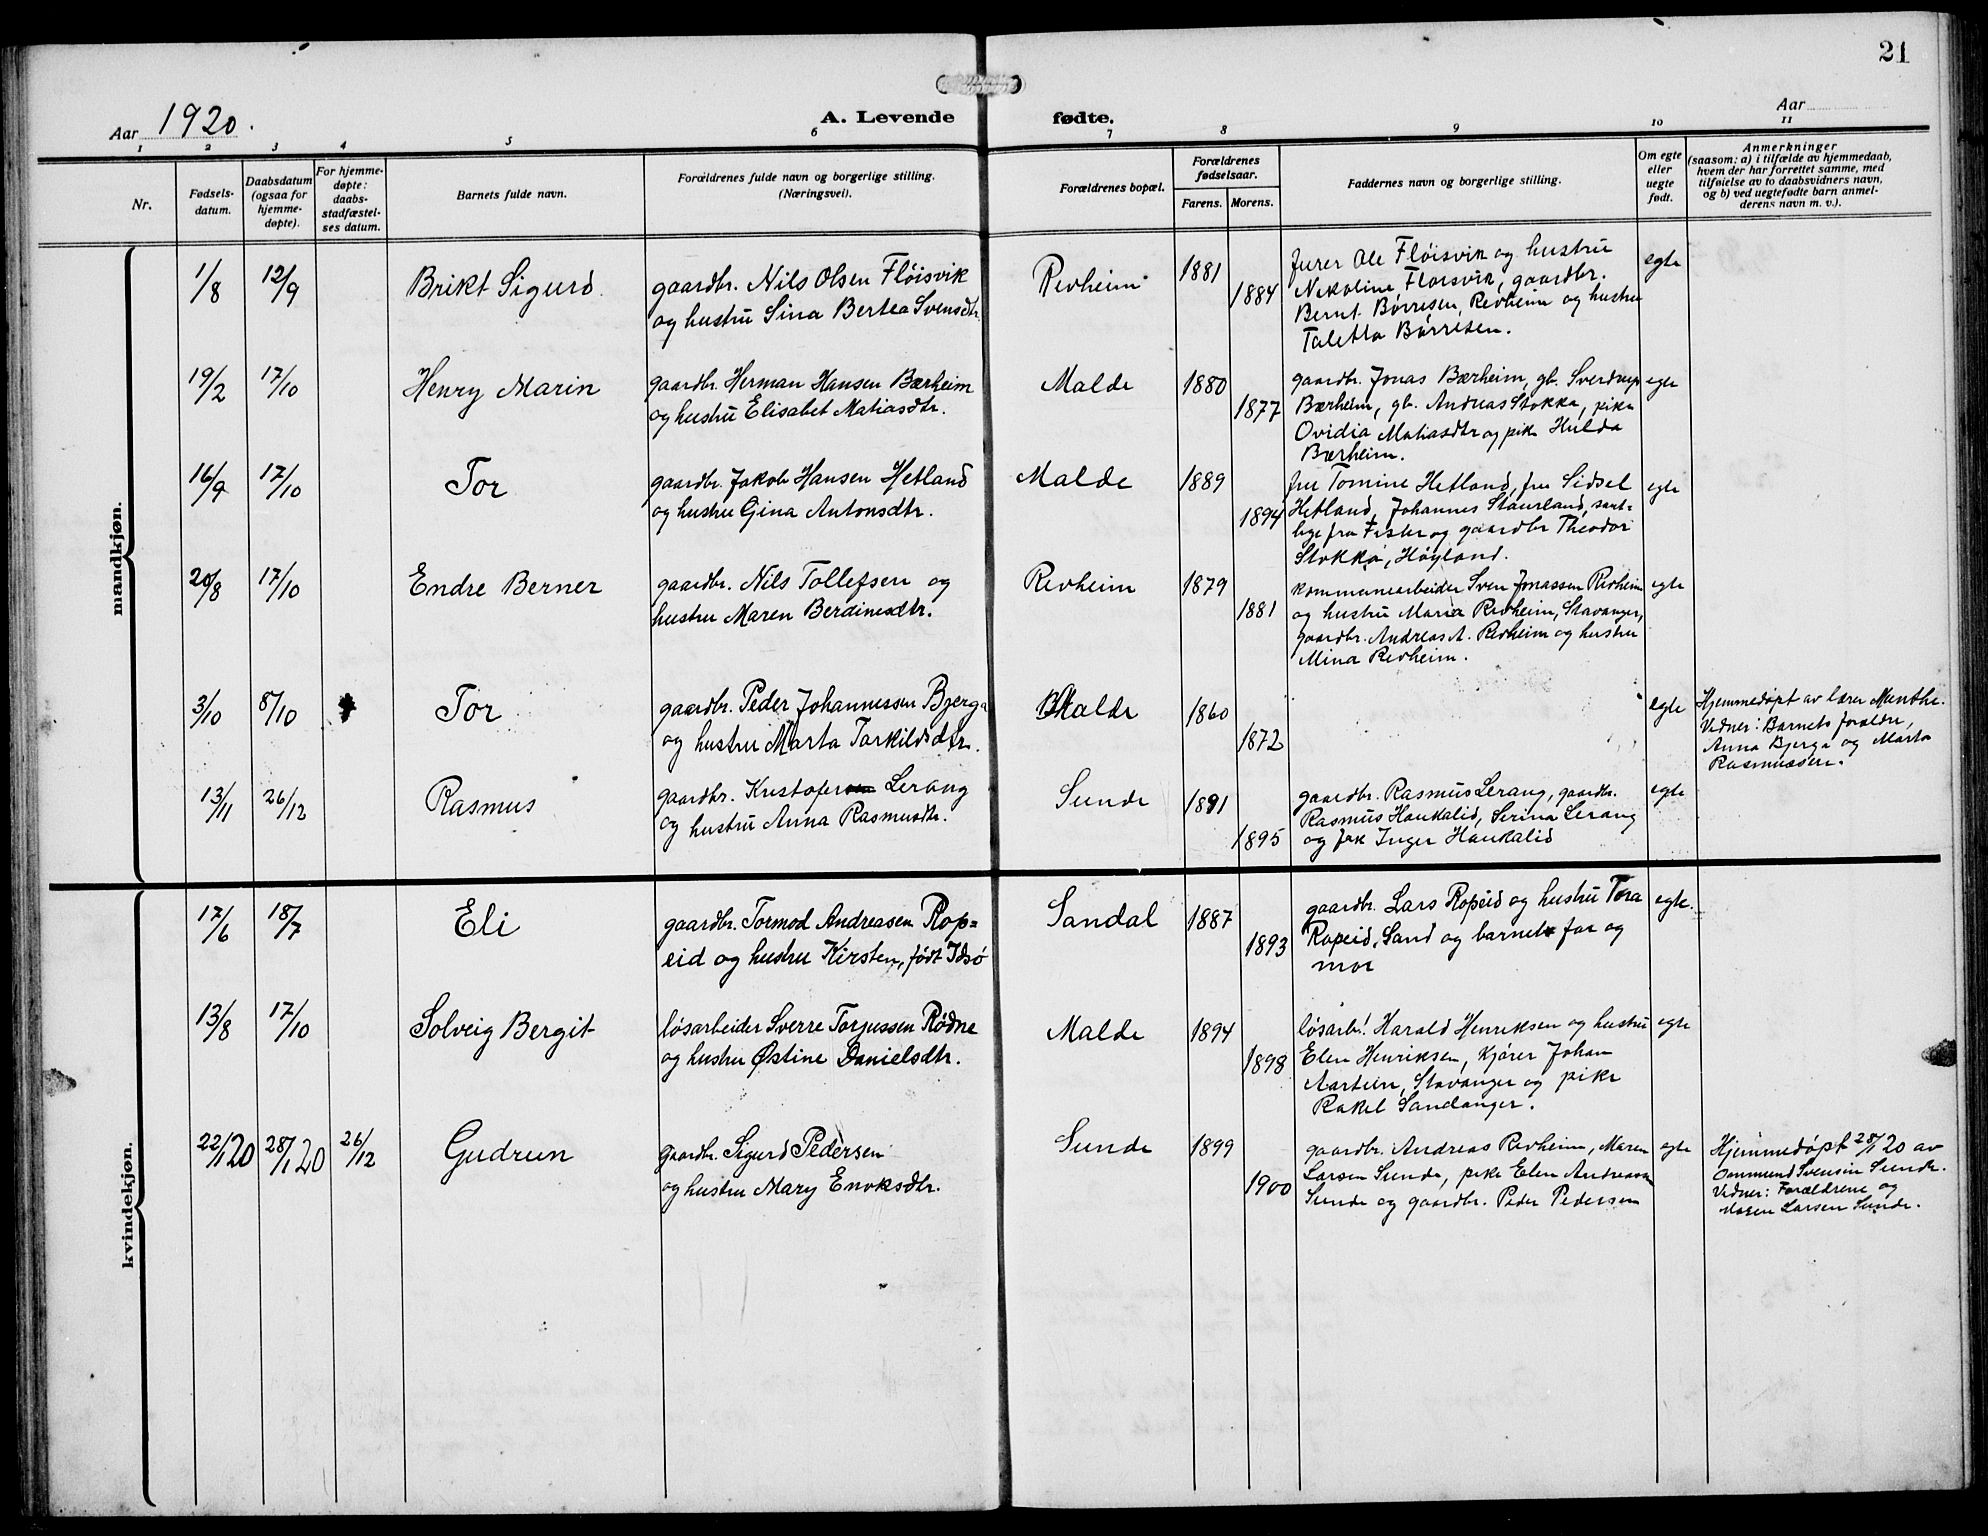 21
Aar 1920.
A. Levende fødte.
Aar
1 2 3 4 5 6 7 8 9 10 11
Nr.
Fødsels-
datum.
Daabsdatum
(ogsaa for
hjemme-
døpte).
For hjemme-
døpte:
daabs-
stadfæstel-
ses datum.
Barnets fulde navn.
Forældrenes fulde navn og borgerlige stilling.
(Næringsvei).
Forældrenes bopæl.
Forældrenes
fødselsaar.
Farens. Morens.
Faddernes navn og borgerlige stilling.
Om egte
eller
uegte
født.
Anmerkninger
(saasom: a) i tilfælde av hjemmedaab,
hvem der har forrettet samme, med
tilføielse av to daabsvidners navn,
og b) ved uegtefødte barn anmel-
derens navn m. v.).
mandkjøn.
1/8 12/9 Brikt Sigurd
gaardbr. Nils Olsen Fløisvik
og hustru Sina Bertea Svensdtr.
Revheim 1881
1884
furer Ole Fløisvik og hustru
Nikoline Fløisvik, gaardbr.
Bernt Børresen, Revheim og hustru
Taletta Børresen.
egte
19/2 17/10 Henry Marin
gaardbr. Herman Hansen Bærheim
og hustru Elisabet Matiasdtr.
Malde 1880
1877
gaardbr. Jonas Bærheim, gb. Sverdrup
Bærheim, gb. Andreas Stokka, pike
Ovidia Matiasdtr og pike Hulda
Bærheim.
egte
16/9 17/10 Tor
gaardbr. Jakob Hansen Hetland
og hustru Gina Antonsdtr.
Malde 1889
1894
fru Tomine Hetland, fru Sidsel
Hetland, Johannes Staurland, samt-
lige fra Fister og gaardbr Theodor
Stokka, Høyland.
egte
20/8 17/10 Endre Berner
gaardbr. Nils Tollefsen og
hustru Maren Berdinesdtr.
Revheim 1879
1881
kommunearbeider Sven Jonassen Revheim
og hustru Maria Revheim, Stavanger,
gaardbr. Andreas A. Revheim og hustru
Mina Revheim.
egte
3/10 8/10 Tor
gaardbr. Peder Johannessen Bjerga
og hustru Marta Torkildsdtr.
Malde 1860
1872
egte
Hjemmedøpt av lærer Munthe.
Vidner: Barnets foreldre,
Anna Bjerga og Marta
Rasmussen.
13/11 26/12 Rasmus
gaardbr. Kristofer Lerang
og hustru Anna Rasmusdtr.
Sunde 1891
1895
gaardbr. Rasmus Lerang, gaardbr.
Rasmus Haukalid, Serina Lerang
og frk Inger Haukalid
egte
kvindekjøn.
17/6 18/7 Eli
gaardbr. Tormod Andreasen Rop=
eid og hustru Kirsten, født Idsø
Sandal 1887
1893
gaardbr. Lars Ropeid og hustru Tora
Ropeid, Sand og barnets far og
mor
egte.
13/8 17/10 Solveig Bergit
løsarbeider Sverre Torjussen Rødne
og hustru Østine Danielsdtr.
Malde 1894
1898
løsarb. Harald Henriksen og hustru
Elen Henriksen, kjører Johan
Aartun, Stavanger og pike
Rakel Sandanger.
egte
22/1 20 28/1 20 26/12 Gudrun
gaardbr. Sigurd Pedersen
og hustru Mary Enoksdtr.
Sunde 1899
1900
gaardbr. Andreas Revheim, Maren
Larsen Sunde, pike Elen Andreassen
Sunde og gaardbr. Peder Pedersen
egte
Hjemmedøpt 28/1 20 av
Ommund Svensen Sunde.
Vidner: Forældrene og
Maren Larsen Sunde.